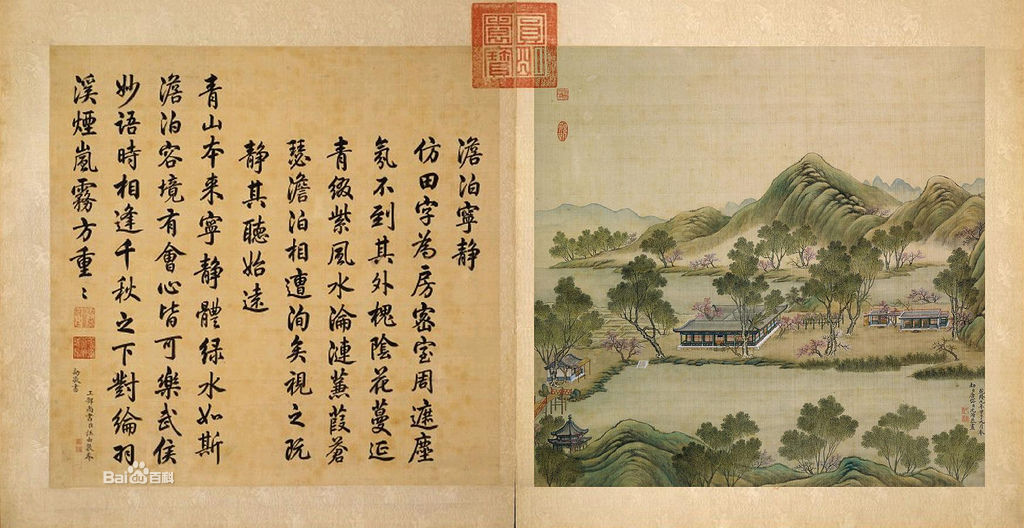 澹泊寧靜
仿田字為房密室周遮塵
氛不到其外槐陰花蔓延
青綴紫風水淪漣蒹葭蒼
瑟澹泊相遭洵矣視之既
靜其聽始遠
青山本来寧靜體綠水如斯
澹泊容境有會心皆可樂武侯
妙語時相逢千秋之下對綸羽
溪煙嵐霧方重〻
工部尚書臣汪由敦奉
勅敬書
Bai百科